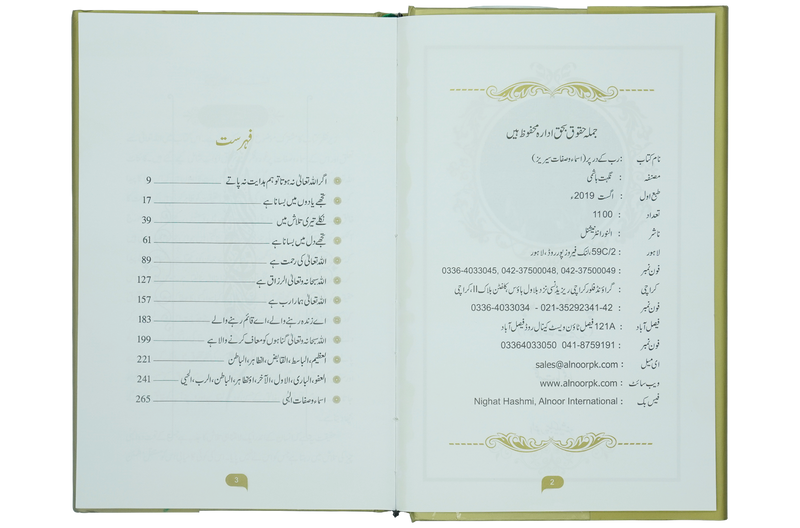 جملہ حقوق بحق ادارہ محفوظ ہیں
نام کتاب : رب کے در پر (اسماء وصفات سیریز)
مصنفہ : نگہت ہاشمی
طبع اول : اگست 2019ء
تعداد : 1100
ناشر : النور انٹرنیشنل
لاہور : 59C/2، لنک فیروز پور روڈ، لاہور
فون نمبر : 0336-4033045, 042-37500048, 042-37500049
کراچی : گراؤنڈ فلور کراچی ریزیڈنسی نزد بلاول ہاؤس کلفٹن بلاک II، کراچی
فون نمبر : 0336-4033034 - 021-35292341-42
فیصل آباد : 121A فیصل ٹاؤن ویسٹ کینال روڈ فیصل آباد
فون نمبر : 03364033050 041-8759191
ای میل : sales@alnoorpk.com
ویب سائٹ : www.alnoorpk.com
فیس بک : Nighat Hashmi, Alnoor International
2
فہرست
اگر اللہ تعالیٰ نہ ہوتا تو ہم ہدایت نہ پاتے 9
تجھے یادوں میں بسانا ہے 17
نکلے تیری تلاش میں 39
تجھے دل میں بسانا ہے 61
اللہ تعالیٰ کی رحمت ہے 89
اللہ سبحانہ وتعالیٰ الرزاق ہے 127
اللہ تعالیٰ ہمارا رب ہے 157
اے زندہ رہنے والے، اے قائم رہنے والے 183
اللہ سبحانہ وتعالیٰ گناہوں کو معاف کرنے والا ہے 199
العظیم، الباسط، القابض، الظاہر، الباطن 221
العفو، الباری، الاول، الآخر، الظاہر، الباطن، الرب، الحیی 241
اسماء وصفات الٰہی 265
3